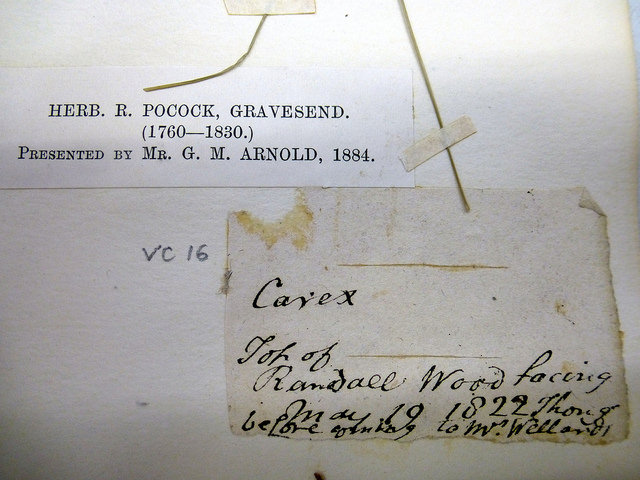 HERB. R. POCOCK, GRAVESEND.
(1760—1830.)
PRESENTED BY MR. G. M. ARNOLD, 1884.
VC 16
Carex
Top of
Randall Wood facing
May 19 1822 Thong
before to Mrs. Wellards